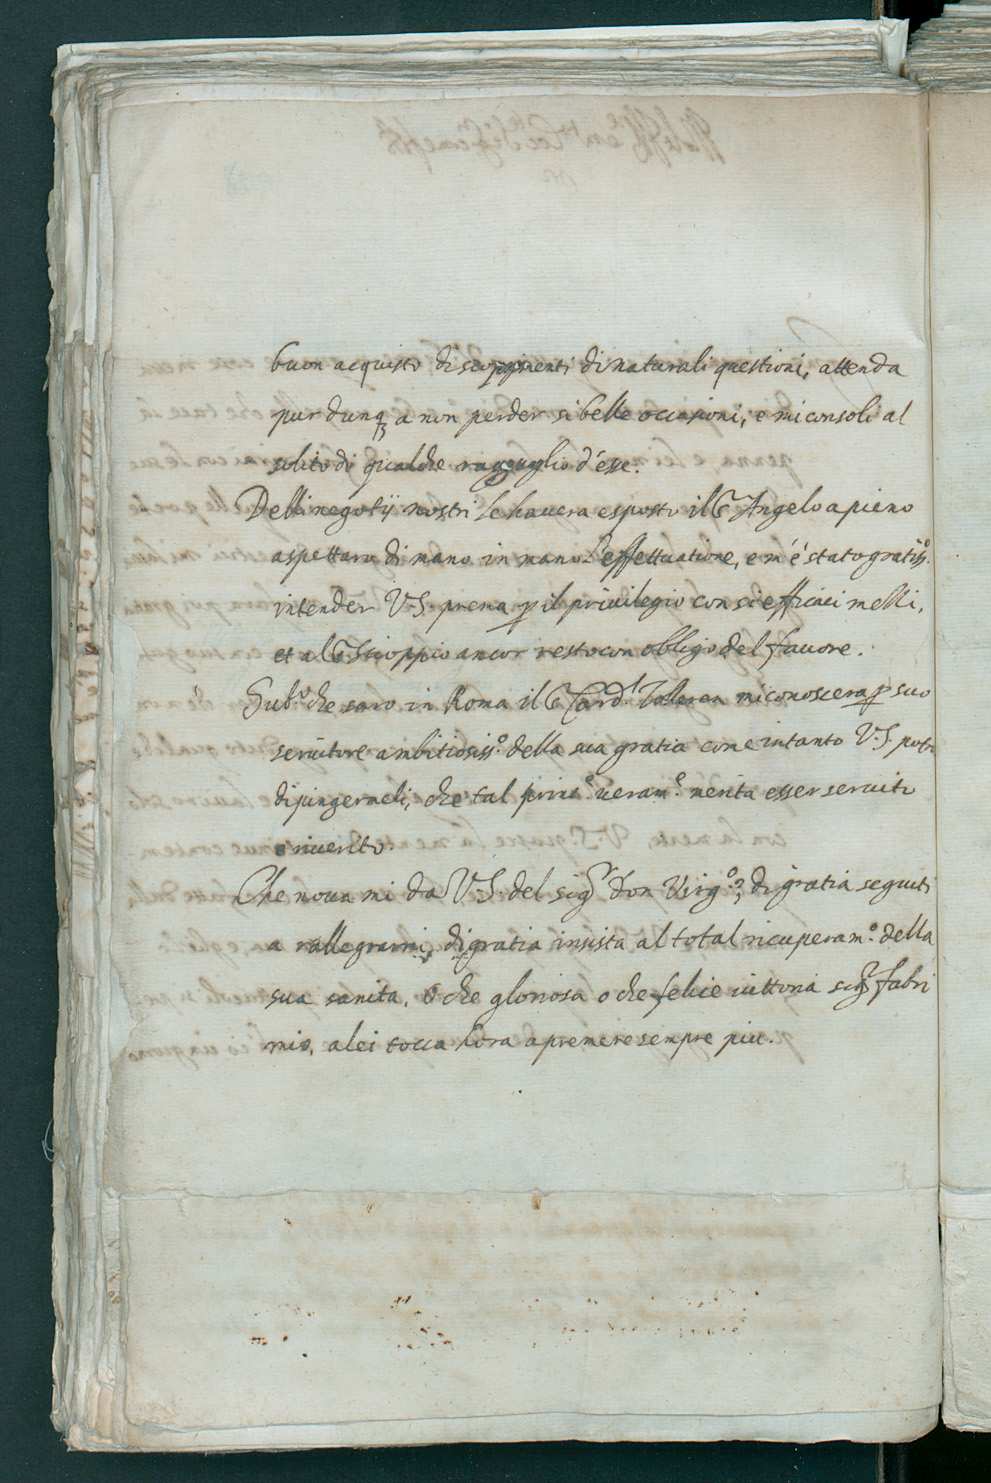 buon acquisto di scoprimenti di naturali questioni, attenda
pur dunq3 a non perder si belle occasioni, e mi consoli al
solito di qualche ragguaglio d'esse.
Delli negotij nostri le hauera esposto il S Angelo a pieno
aspettaro di mano in mano l'effettuatione, e m'è stato gratiss.o
intender V.S. prema p il priuilegio con si efficaci mezzi,
et al S Scioppio ancor resto con obligo del fauore.
Sub.o che saro in Roma il S Card.l mi conoscera p suo
seruitore ambitiosiss.o della sua gratia come intanto V.S. potra
dipingermeli, che tal prin.e ueram.e merita esser seruito
e riuerito.
Che noua mi da V.S. del sig.r Don Virg.o?, di gratia seguiti
a rallegrarmi, di gratia insista al total ricuperam.o della
sua sanita. o che gloriosa o che felice uittoria sig.r fabri
mio, a lei tocca hora a premere sempre piu.